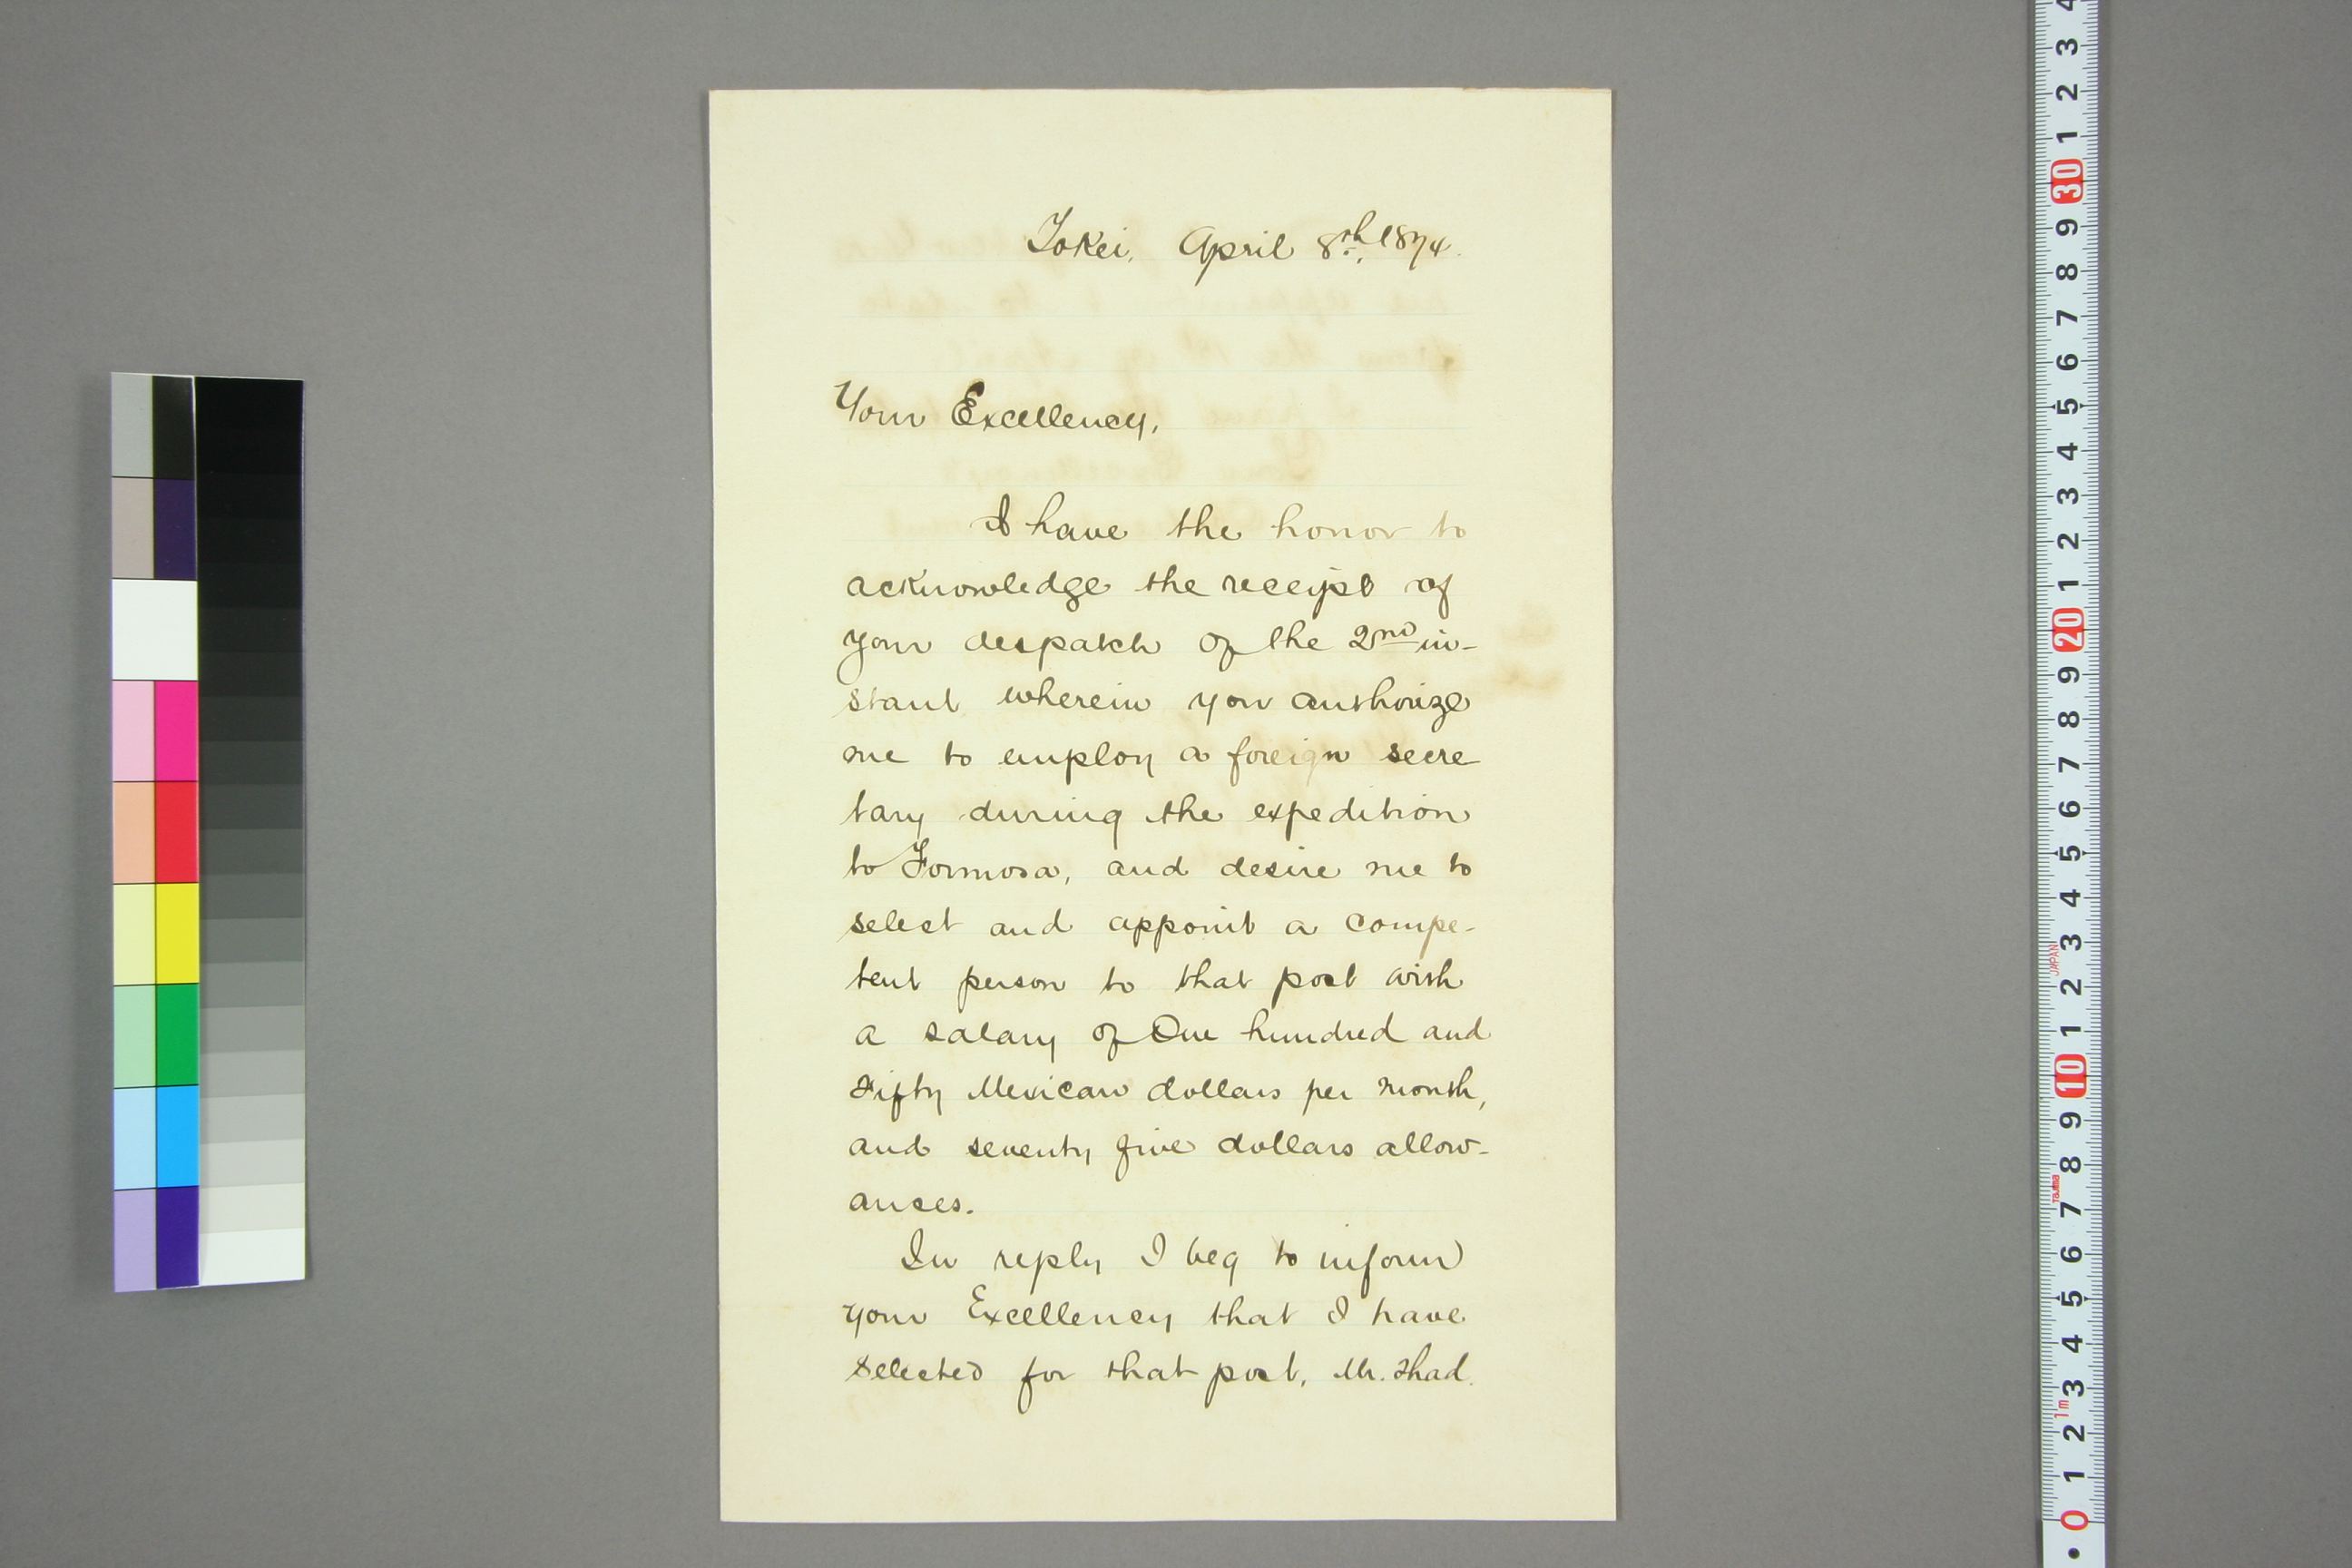 Tokei, April 8th, 1874.
Your Excellency,
I have the honor to
acknowledge the receipt of
your despatch of the 2nd in-
stant wherein you authorize
me to employ a foreign secre
tary during the expedition
to Formosa, and desire me to
select and appoint a compe-
tent person to that post with
a salary of One hundred and
Fifty Mexican dollars per month,
and seventy five dollars allow-
ances.
In reply I beg to inform
your Excellency that I have
selected for that post, Mr. Thad.
4
3
2
1
30
9
8
7
6
5
4
3
2
1
20
9
8
7
6
5
4
3
JAPAN
2
1
10
9
8
Tajima
7
6
5
4
3
1m
2
1
0